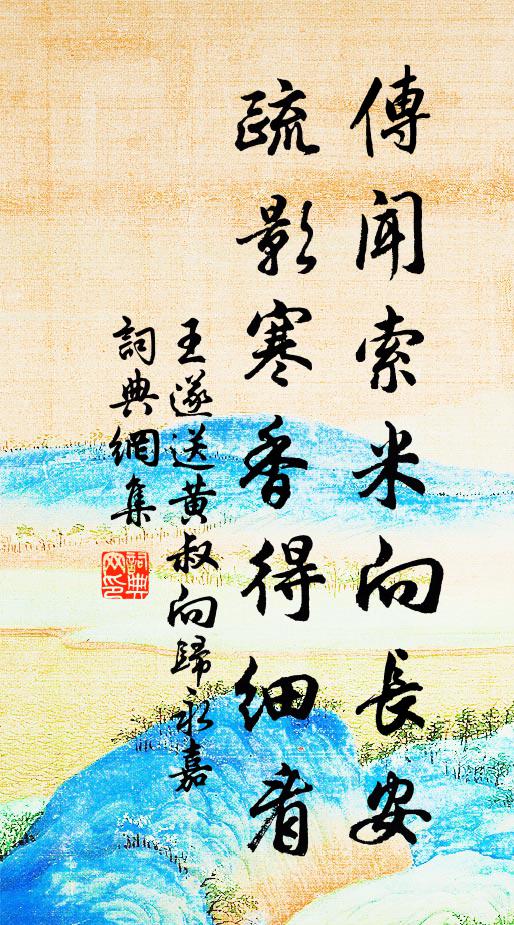 傳聞索米向長安
疏影寒香得細看
王遂送黄叔向歸永嘉
詞典網集
詞典網印